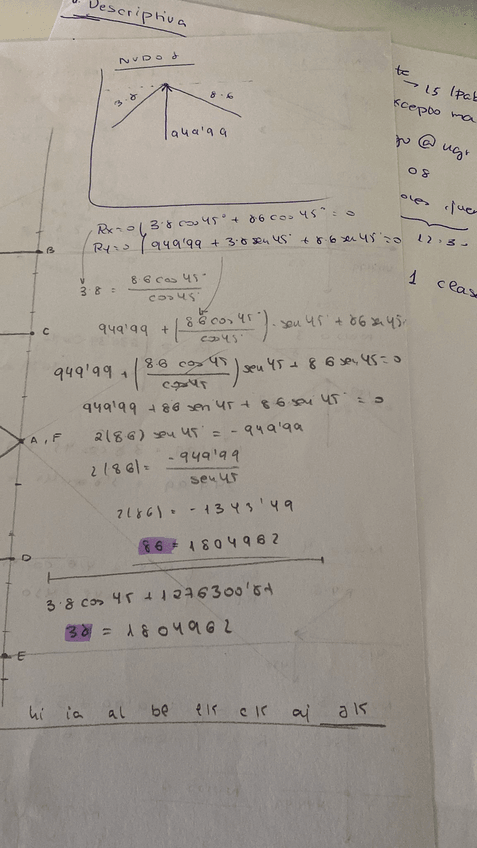 Descriptiva
NUDO 8
3.8
8.6
949'99
Rx=0 3.8 cos 45° + 86 cos 45° = 0
Ry=0 949'99 + 3.8 sen 45° + 8.6 sen 45° = 0
3.8 = 86 cos 45° / cos 45°
949'99 + (86 cos 45° / cos 45°) · sen 45 + 86 sen 45
949'99 + (8.6 cos 45 / cos 45) sen 45 + 8 6 sen 45 = 0
949'99 + 86 sen 45 + 86 sen 45° = 0
2(86) sen 45° = -949'99
2(86) = -949'99 / sen 45
2(86) = -1343'49
86 = 1804962
3.8 cos 45 + 1276300'87
38 = 1804962
hi ia al be ek ck aj ak
B
C
A, F
D
E
te
→ 15
@ ugr
08
12:3
1 clase